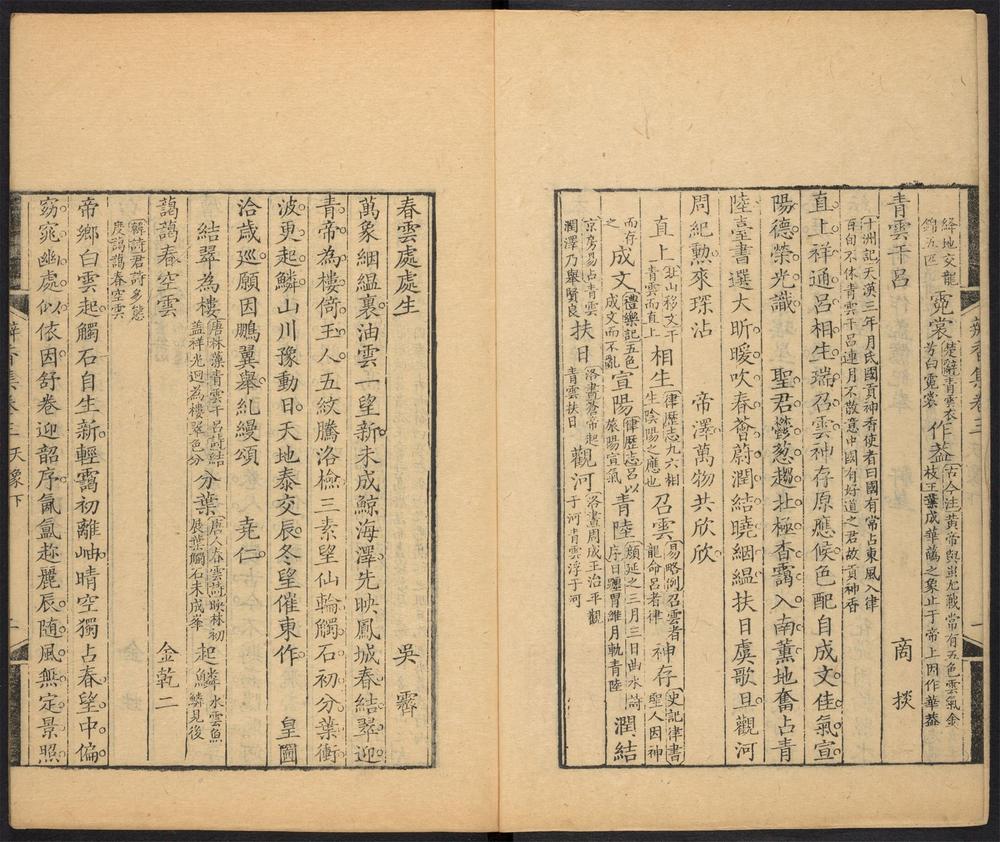 絳地交龍錦五匹　霓裳楚辭青雲衣兮白霓裳　作蓋古今注黃帝與蚩尤戰常有五色雲氣金枝玉葉成華蘤之象止于帝上因作華蓋
青雲干呂　商掞
十洲記天漢三年月氏國貢神香使者曰國有常占東風入律百旬不休青雲干呂連月不散意中國有好道之君故貢神香
直上祥通呂相生瑞召雲神存原應候色配自成文佳氣宣
陽德榮光識　聖君鬱葱趨北極香靄入南薰地奮占青
陸臺書選大昕暖吹春薈蔚潤結曉絪縕扶日虞歌旦觀河
周紀勲來琛沾　帝澤萬物共欣欣
直上北山移文干青雲而直上　相生律歷志九六相生陰陽之應也　召雲易略例召雲者龍命呂者律　神存史記律書聖人因神
而存之　成文禮樂記五色成文而不亂　宣陽律歷志呂以旅陽宣氣　青陸顏延之三月三日曲水詩序日躔胃維月軌青陸　潤結
京房易占青雲潤澤乃舉賢良　扶日洛書蒼帝起青雲扶日　觀河洛書周成王治平觀于河青雲浮于河
春雲處處生　吳霽
萬象絪縕裏油雲一望新未成鯨海澤先映鳳城春結翠迎
青帝為樓倚玉人五紋騰洛檢三素望仙輪觸石初分葉衝
波更起鱗山川豫動日天地泰交辰冬望催東作　皇圖
洽歲巡願因鵬翼舉糺縵頌　堯仁
結翠為樓唐林藻青雲干呂詩結蓋祥光迥為樓翠色分　分葉唐人春雲詩映林初展葉觸石未成峯　起鱗水雲魚鱗見後
藹藹春空雲　金乾二
韓詩君詩多態度藹藹春空雲
帝鄉白雲起觸石自生新輕靄初離岫晴空獨占春望中偏
窈窕幽處似依因舒卷迎韶序氤氳趂麗辰随風無定景照